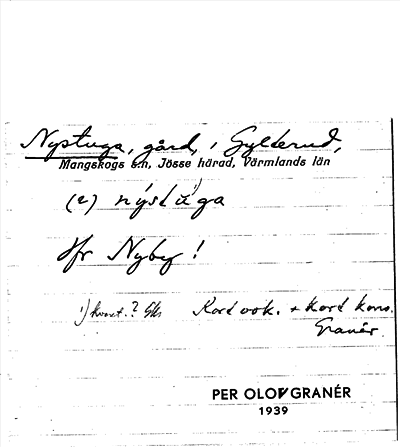 Nystuga, gård, i Gylterud,
Mangskogs s:n, Jösse härad, Värmlands län
(e) nýstùga
Jfr Nyby!
1) kvant.? Kort vok. + kort kons.
Granér.
PER OLOF GRANÉR
1939